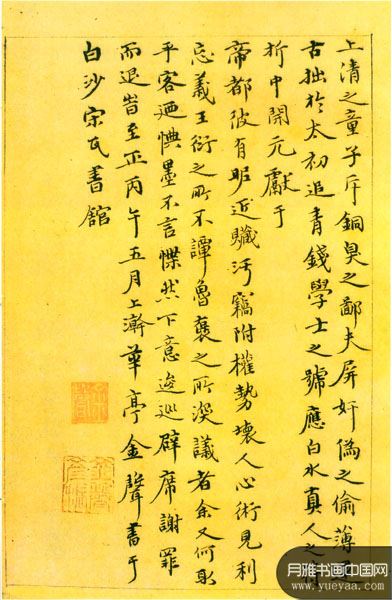 上清之童子斥銅臭之鄙夫屏奸僞之偷薄
古拙於太初追青錢學士之號應白水真人之
折中開元獻于
帝都彼有昵近贓汚竊附權勢壞人心術見利
忘義王衍之所不譚魯褒之所深議者余又何取
乎客迺墨不言惵然下意逡巡辟席謝罪
而退峕至正丙午五月上澣華亭金聲書于
白沙宋氏書館
月雅书画中国网
www.yueyaa.com